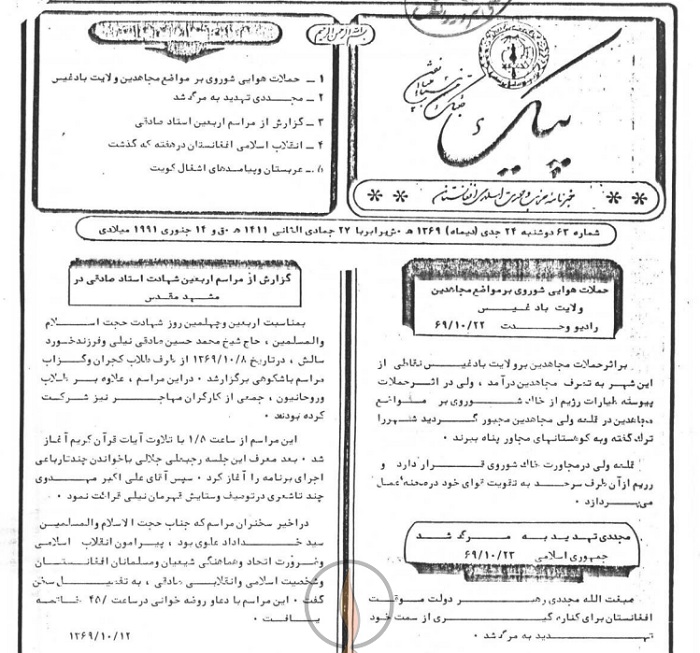 بسم الله الرحمن الرحیم
پیک
خبرنامه مرکزی حرکت اسلامی افغانستان
۱ ــ حملات هوایی شوروی بر مواضع مجاهدین ولایت بادغیس
۲ ــ مجـددی تهدید به مرگ شد
۳ ــ گزارش از مراسم اربعین استاد صادقی
۴ ــ انقلاب اسلامی افغانستان در هفته که گذشت
۵ ــ عربستان و پیامدهای اشغال کویت
شماره ۶۳ دوشنبه ۲۴ جدی (دیماه) ۱۳۶۹ هـ ش برابر با ۲۷ جمادی الثانی ۱۴۱۱ هـ ق و ۱۴ جنوری ۱۹۹۱ میلادی
حملات هوایی شوروی بر مواضع مجاهدین
ولایت بادغیس
رادیو وحدت ۶۹/۱۰/۲۲
بر اثر حملات مجاهدین بر ولایت بادغیس نقاطی از
این شهر به تصرف مجاهدین در آمد ، ولی در اثر حملات
پیوسته طیارات رژیم از خاک شوروی بر مواضع
مجاهدین در قلعه ولی مجاهدین مجبور گردید شهر را
ترک گفته و به کوهستانهای مجاور پناه ببرند ۰
قلعه ولی در مجاورت خاک شوروی قرار دارد و
رژیم از آن طرف سرحد به تقویت قوای خود در صحنه عمل
می پردازد ۰
مجددی تهدید به مرگ شد
جمهوری اسلامی ۶۹/۱۰/۲۳
صبغت الله مجددی رهبر دولت موقت
افغانستان برای کناره گیری از سمت خود
تهدید به مرگ شد ۰
گزارش از مراسم اربعین شهادت استاد صادقی در
مشهد مقدس
بمناسبت اربعین و چهلمین روز شهادت حجت الاسلام
والمسلمین ، حاج شیخ محمد حسین صادقی نیلی و فرزند خورد
سالش ، در تاریخ ۱۳۶۹/۱۰/۸ از طرف طلاب کجران و گزاب
مراسم باشکوهی برگزار شد ۰ در این مراسم ، علاوه بر طلاب
و روحانیون ، جمعی از کارگران مهاجر نیز شرکت
کرده بودند ۰
این مراسم از ساعت ۱/۵ با تلاوت آیات قرآن کریم آغاز
شد ۰ بعد معرف این جلسه رجبعلی جلالی با خواندن چند رباعی
اجرای برنامه را آغاز کرد ۰ سپس آقای علی اکبر مهدوی
چند تا شعری در توصیف و ستایش قهرمان نیلی قرائت نمود ۰
در اخیر سخنران مراسم که جناب حجت الاسلام والمسلمین
سید خداداد علوی بود ، پیرامون انقلاب اسلامی
و ضرورت اتحاد و هماهنگی شیعیان و مسلمانان افغانستان
و شخصیت اسلامی و انقلابی صادقی ، به تفصیل سخن
گفت ۰ این مراسم با دعا و روضه خوانی در ساعت ۴/۵ خاتمه
یافت ۰
۱۳۶۹/۱۰/۱۲